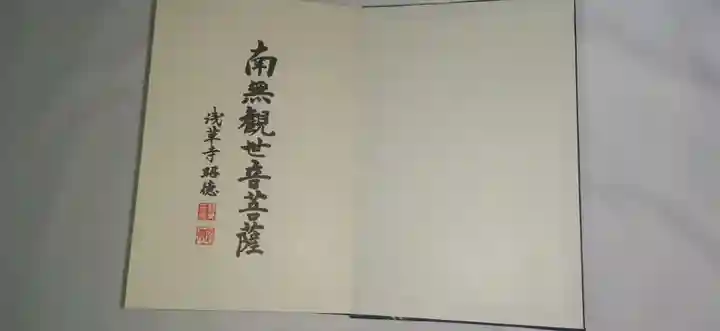 南無觀世音菩薩
浅草寺昭徳